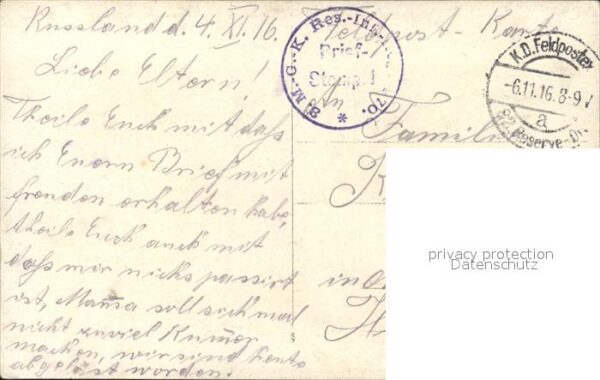 Russland d. 4. XI. 16.
Feldpost-Karte
Liebe Eltern!
An
Familie
Theile Euch mit daß
ich Euern Brief mit
freuden erhalten habe,
theile Euch auch mit
daß mir nichs passirt
ist, Mama soll sich mal
nicht zuviel Kumer
machen, wir sind heute
abgelöst worden.
M.-G.-K. Res.-Inf.
70.
Brief-
Stempel
K.D.Feldposte
-6.11.16.8-9V
a
Reserve-Di
in
privacy protection
Datenschutz